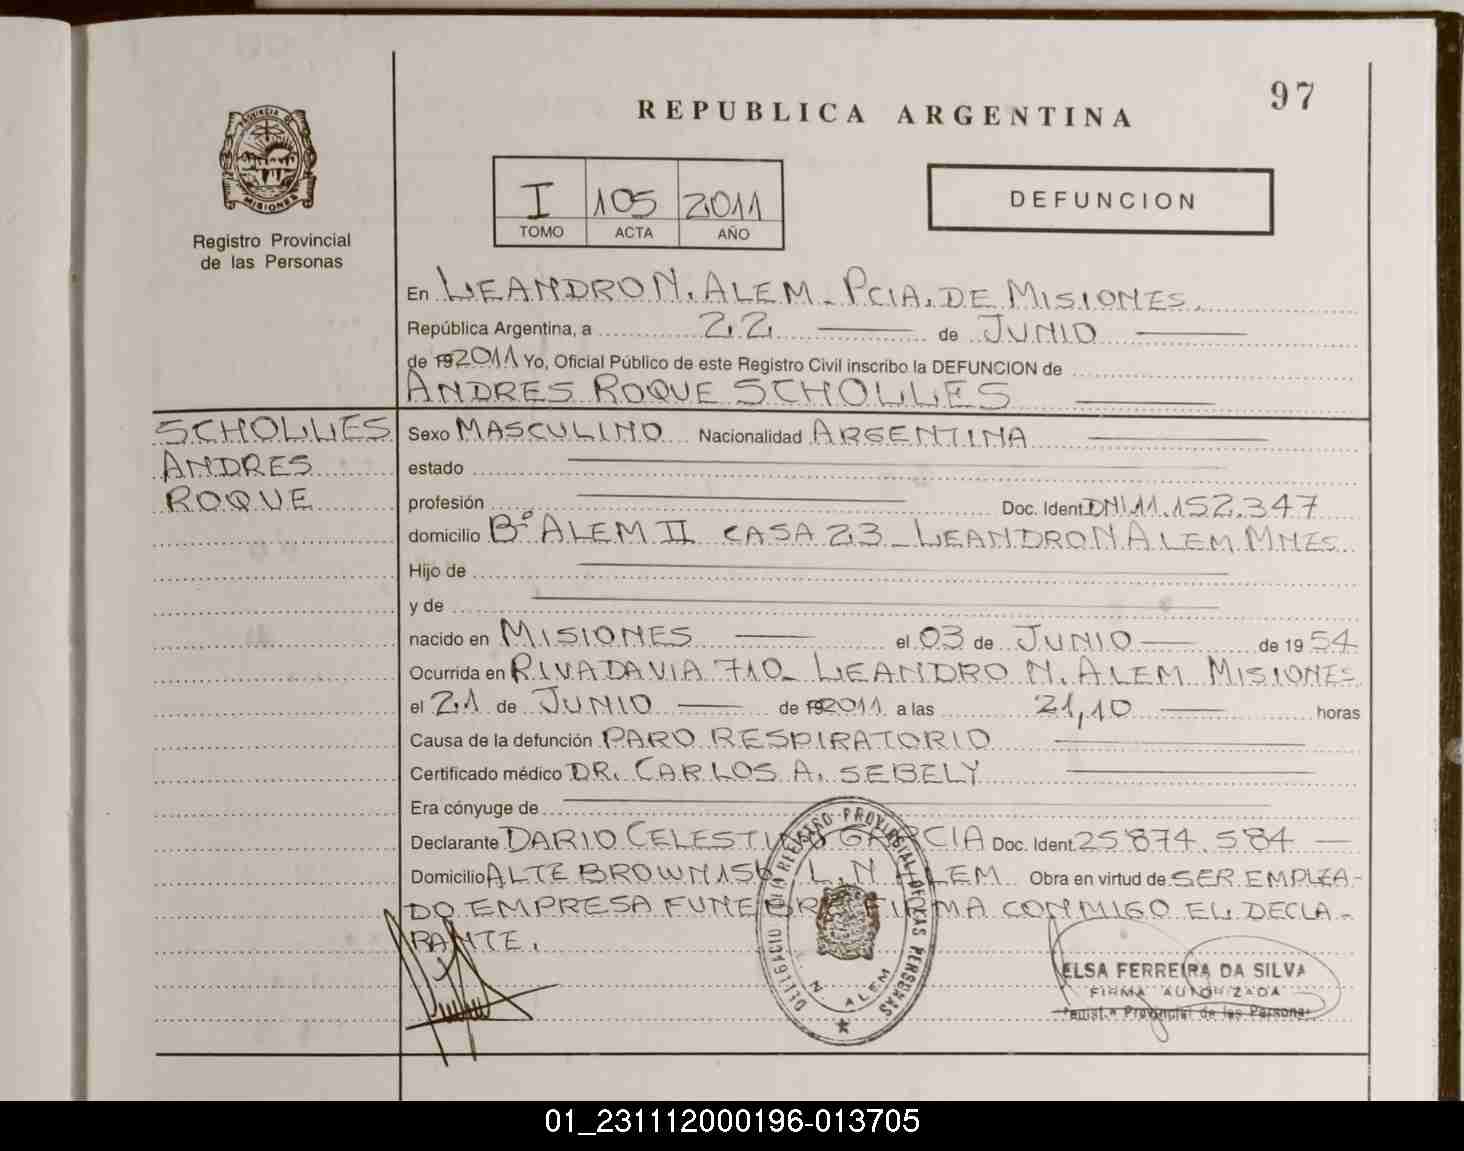 97
REPUBLICA ARGENTINA
PROVINCIA DE
MISIONES
Registro Provincial
de las Personas
I 105 2011
TOMO ACTA AÑO
DEFUNCION
En LEANDRO N. ALEM - PCIA. DE MISIONES.
República Argentina, a 22 de JUNIO
de 19 2011 Yo, Oficial Público de este Registro Civil inscribo la DEFUNCION de
ANDRES ROQUE SCHOLLES
SCHOLLES
ANDRES
ROQUE
Sexo MASCULINO Nacionalidad ARGENTINA
estado
profesión Doc. Ident. DNI. 11.152.347
domicilio Bº ALEM II CASA 23 - LEANDRO N ALEM MNES.
Hijo de
y de
nacido en MISIONES el 03 de JUNIO de 19 54
Ocurrida en RIVADAVIA 710 - LEANDRO N. ALEM MISIONES
el 21 de JUNIO de 19 2011 a las 21,10 horas
Causa de la defunción PARO RESPIRATORIO
Certificado médico DR. CARLOS A. SEBELY
Era cónyuge de
Declarante DARIO CELESTINO GARCIA Doc. Ident. 25.874.584
Domicilio ALTE BROWN L.N ALEM Obra en virtud de SER EMPLEA-
DO EMPRESA FUNEBRE FIRMA CONMIGO EL DECLA-
RANTE.
REGISTRO PROVINCIAL DE LAS PERSONAS
N. ALEM
ELSA FERREIRA DA SILVA
FIRMA AUTORIZADA
Provincial de las Personas
01_231112000196-013705